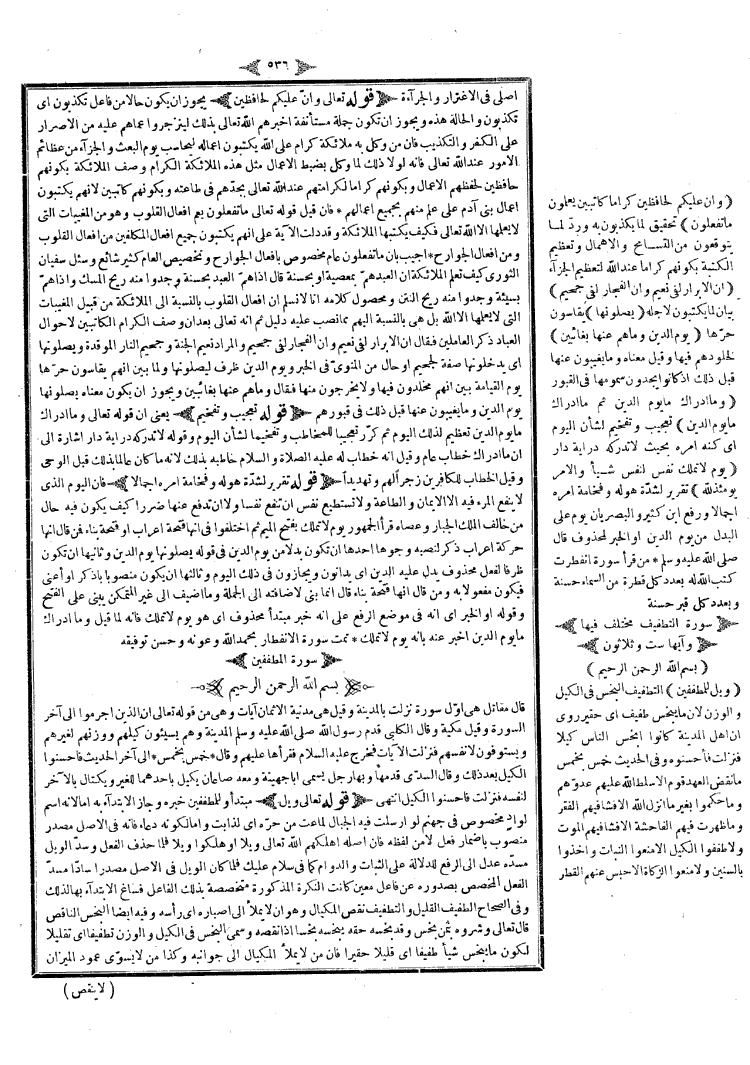 ٥٣٦
اصلى فى الاغترار والجرآءة ﴿ قوله تعالى وان عليكم لحافظين ﴾ يجوز ان يكون حالا من فاعل تكذبون اى
تكذبون والحالة هذه ويجوز ان تكون جملة مستأنفة اخبرهم الله تعالى بذلك لينزجروا عماهم عليه من الاصرار
على الكفر والتكذيب فان من وكل به ملائكة كرام على الله يكتبون اعماله ليحاسب يوم البعث والجزآء من عظائم
الامور عند الله تعالى فانه لولا ذلك لما وكل بضبط الاعمال مثل هذه الملائكة الكرام وصف الملائكة بكونهم
حافظين لحفظهم الاعمال وبكونهم كراما لكرامتهم عند الله تعالى بجدّهم فى طاعته وبكونهم كاتبين لانهم يكتبون
اعمال بنى آدم على علم منهم بجميع اعمالهم * فان قيل قوله تعالى ماتفعلون يعم افعال القلوب وهو من المغيبات التى
لايعلمها الا الله تعالى فكيف يكتبها الملائكة وقد دلت الآية على انهم يكتبون جميع افعال المكلفين من افعال القلوب
ومن افعال الجوارح * اجيب بان ماتفعلون عام مخصوص بافعال الجوارح وتخصيص العام كثير شائع وسئل سفيان
الثورى كيف تعلم الملائكة ان العبد همّ بمعصية او بحسنة قال اذا همّ العبد بحسنة وجدوا منه ريح المسك واذا همّ
بسيئة وجدوا منه ريح النتن ومحصول كلامه انا لانسلم ان افعال القلوب بالنسبة الى الملائكة من قبيل المغيبات
التى لايعلمها الا الله بل هى بالنسبة اليهم بما نصب عليه دليل ثم انه تعالى بعد ان وصف الكرام الكاتبين لاحوال
العباد ذكر العاملين فقال ان الابرار لفى نعيم وان الفجار لفى جحيم والمراد نعيم الجنة وجحيم النار الموقدة ويصلونها
اى يدخلونها صفة لجحيم او حال من المنوىّ فى الخبر ويوم الدين ظرف ليصلونها ولما بين انهم يقاسون حرّها
يوم القيامة بين انهم مخلدون فيها ولايخرجون منها فقال وماهم عنها بغائبين ويجوز ان يكون معناه يصلونها
يوم الدين ومايغيبون عنها قبل ذلك فى قبورهم ﴿ قوله تعجيب وتفخيم ﴾ يعنى ان قوله تعالى وما ادراك
مايوم الدين تعظيم لذلك اليوم ثم كرّر تعجيبا للمخاطب وتفخيما لشأن اليوم وقوله لاتدركه دراية دار اشارة الى
ان ما ادراك خطاب عام وقيل انه خطاب له عليه الصلاة والسلام خاطبه بذلك لانه ما كان عالما بذلك قبل الوحى
وقيل الخطاب للكافرين زجرا لهم وتهديدا ﴿ قوله تقرير لشدّة هوله وفخامة امره اجمالا ﴾ فان اليوم الذى
لاينفع المرء فيه الا الايمان والطاعة ولاتستطيع نفس ان تنفع نفسا ولا ان تدفع عنها ضررا كيف يكون فيه حال
من خالف الملك الجبار وعصاه قرأ الجمهور يوم لاتملك بفتح الميم ثم اختلفوا فى انها فتحة اعراب او فتحة بناء فمن قال انها
حركة اعراب ذكر لنصبه وجوها احدها ان تكون بدلا من يوم الدين فى قوله يصلونها يوم الدين وثانيها ان تكون
ظرفا لفعل محذوف يدل عليه الدين اى يدانون ويجازون فى ذلك اليوم وثالثها ان يكون منصوبا باذكر او اعنى
فيكون مفعولا به ومن قال انها فتحة بناء قال انما بنى لاضافته الى الجملة وما اضيف الى غير المتمكن يبنى على الفتح
وقوله او الخبر اى انه فى موضع الرفع على انه خبر مبتدأ محذوف اى هو يوم لاتملك فانه لما قيل وما ادراك
مايوم الدين اخبر عنه بانه يوم لاتملك * تمت سورة الانفطار بحمد الله وعونه وحسن توفيقه
﴿ سورة المطففين ﴾
﴿ بسم الله الرحمن الرحيم ﴾
قال مقاتل هى اوّل سورة نزلت بالمدينة وقيل هى مدنية الاثمان آيات وهى من قوله تعالى ان الذين اجرموا الى آخر
السورة وقيل مكية وقال الكلبى قدم رسول الله صلى الله عليه وسلم المدينة وهم يسيئون كيلهم ووزنهم لغيرهم
ويستوفون لانفسهم فنزلت الآيات فخرج عليه السلام فقرأها عليهم وقال * خمس بخمس * الى آخر الحديث فاحسنوا
الكيل بعد ذلك وقال السدّى قدمها وبها رجل يسمى اباجهينة ومعه صاعان يكيل باحدهما للغير ويكتال بالآخر
لنفسه فنزلت فاحسنوا الكيل انتهى ﴿ قوله تعالى ويل ﴾ مبتدأ وللمطففين خبره وجاز الابتدآء به امالانه اسم
لوادٍ مخصوص فى جهنم لو ارسلت فيه الجبال لماعت من حرّه اى لذابت وامالكونه دعاء فانه فى الاصل مصدر
منصوب باضمار فعل لامن لفظه فان اصله اهلكهم الله تعالى ويلا او هلكوا ويلا فلما حذف الفعل وسدّ الويل
مسدّه عدل الى الرفع للدلالة على الثبات والدوام كما فى سلام عليك فلما كان الويل فى الاصل مصدرا سادّا مسدّ
الفعل المخصص بصدوره عن فاعل معين كانت النكرة المذكورة متخصصة بذلك الفاعل فساغ الابتدآء بها لذلك
وفى الصحاح الطفيف القليل والتطفيف نقص المكيال وهو ان لايملأ الى اصباره اى رأسه وفيه ايضا البخس الناقص
قال تعالى وشروه بثمن بخس وقد بخسه حقه يبخسه بخسا اذا نقصه وسمى البخس فى الكيل والوزن تطفيفا اى تقليلا
لكون مايبخس شيأ طفيفا اى قليلا حقيرا فان من لايملأ المكيال الى جوانبه وكذا من لايسوّى عمود الميزان
( لاينقص )
( وان عليكم لحافظين كراما كاتبين يعلمون
ماتفعلون ) تحقيق لما يكذبون به وردّ لما
يتوقعون من التسامح والاهمال وتعظيم
الكتبة بكونهم كراما عند الله لتعظيم الجزآء
( ان الابرار لفى نعيم وان الفجار لفى جحيم )
بيان لما يكتبون لاجله ( يصلونها ) يقاسون
حرّها ( يوم الدين وماهم عنها بغائبين )
لخلودهم فيها وقيل معناه ومايغيبون عنها
قبل ذلك اذ كانوا يجدون سمومها فى القبور
( وما ادراك مايوم الدين ثم ما ادراك
مايوم الدين ) تعجيب وتفخيم لشأن اليوم
اى كنه امره بحيث لاتدركه دراية دار
( يوم لاتملك نفس لنفس شيأ والامر
يومئذ لله ) تقرير لشدّة هوله وفخامة امره
اجمالا ورفع ابن كثير والبصريان يوم على
البدل من يوم الدين او الخبر لمحذوف قال
صلى الله عليه وسلم * من قرأ سورة انفطرت
كتب الله له بعدد كل قطرة من السماء حسنة
وبعدد كل قبر حسنة
﴿ سورة التطفيف مختلف فيها ﴾
﴿ وآيها ست وثلاثون ﴾
( بسم الله الرحمن الرحيم )
( ويل للمطففين ) التطفيف البخس فى الكيل
والوزن لان مايبخس طفيف اى حقير روى
ان اهل المدينة كانوا اخس الناس كيلا
فنزلت فأحسنوه وفى الحديث خمس بخمس
مانقض العهد قوم الاسلط الله عليهم عدوّهم
وماحكموا بغير ما نزل الله الافشا فيهم الفقر
وماظهرت فيهم الفاحشة الافشا فيهم الموت
ولا طففوا الكيل الامنعوا النبات واخذوا
بالسنين ولامنعوا الزكاة الاحبس عنهم القطر